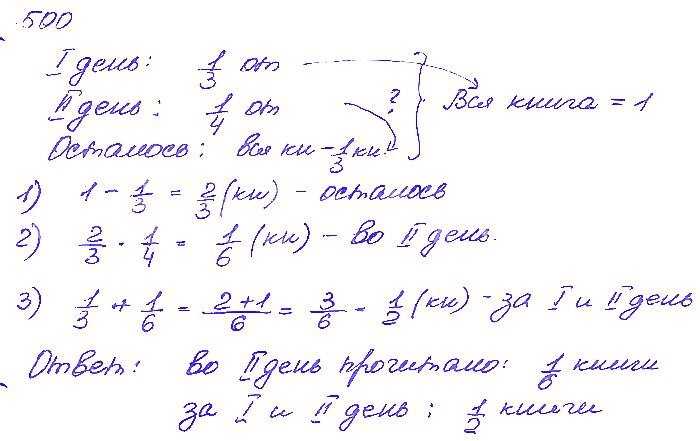 500
I день: 1/3 от
II день: 1/4 от ? } Вся книга = 1
Осталось: вся кн - 1/3 кн.
1) 1 - 1/3 = 2/3 (кн) - осталось
2) 2/3 · 1/4 = 1/6 (кн) - во II день.
3) 1/3 + 1/6 = 2+1/6 = 3/6 = 1/2 (кн) - за I и II день
Ответ: во II день прочитано: 1/6 книги
за I и II день; 1/2 книги